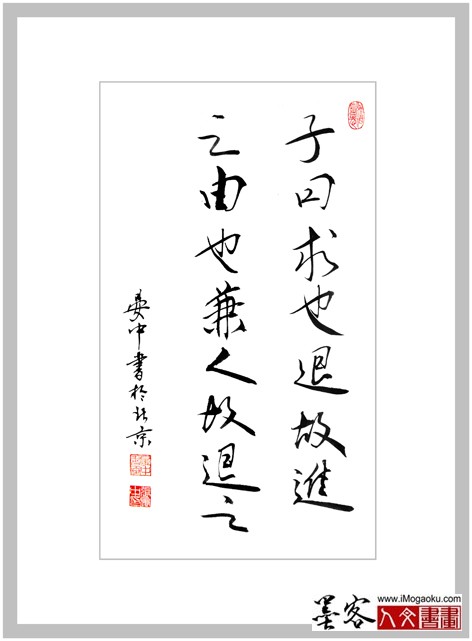 子曰求也退故進
之由也兼人故退之
晏中書於北京
www.iMogaoku.com
墨客人文書畫